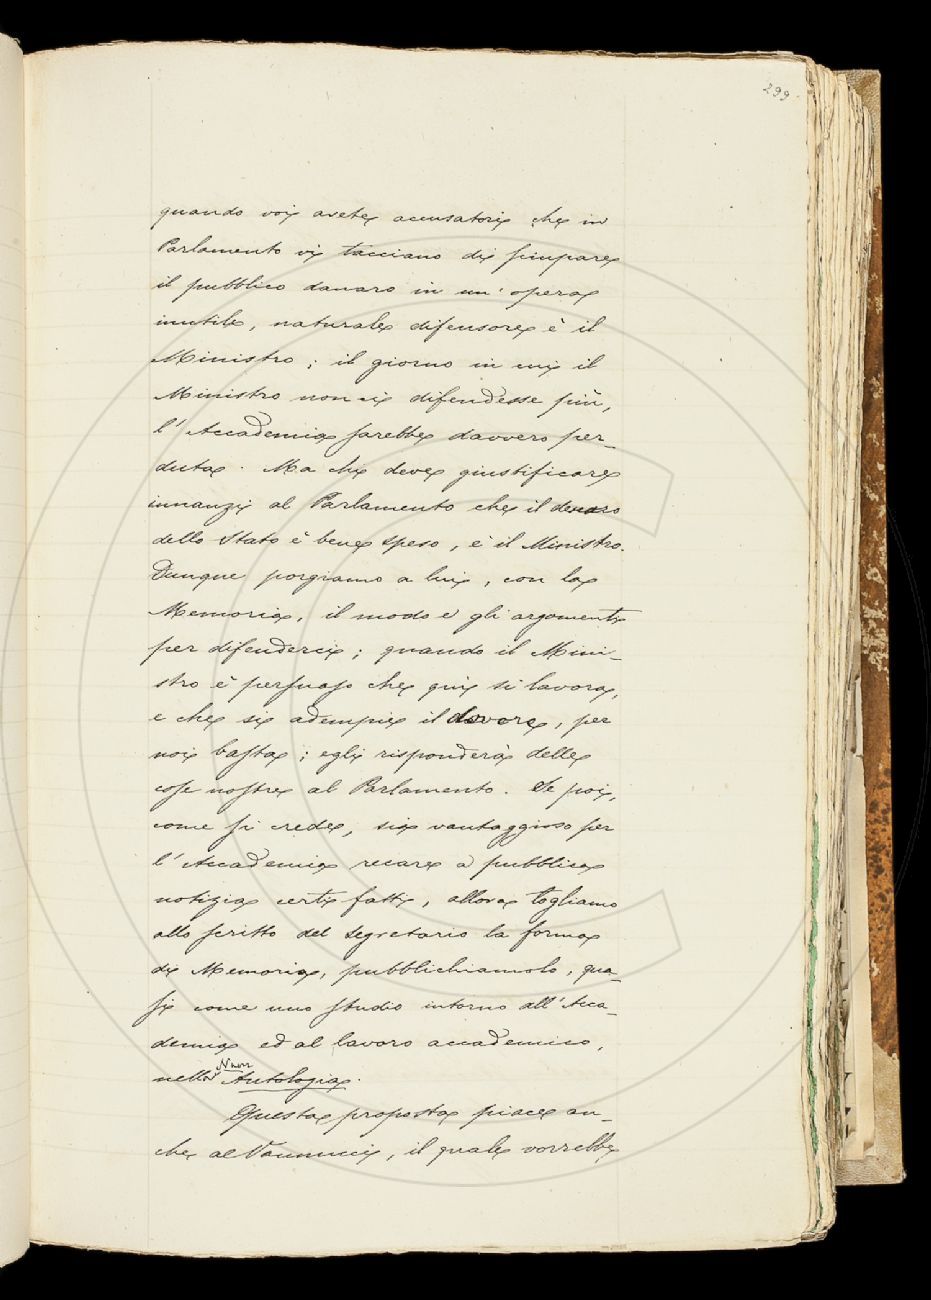 299
quando voi avete accusatori che in
Parlamento vi tacciano di sciupare
il pubblico danaro in un' opera
inutile, naturale difensore è il
Ministro; il giorno in cui il
Ministro non ci difendesse più,
l' Accademia sarebbe davvero per-
duta. Ma chi deve giustificare
innanzi al Parlamento che il denaro
dello Stato è bene speso, è il Ministro.
Dunque porgiamo a lui, con la
Memoria, il modo e gli argomenti
per difenderci; quando il Mini-
stro è persuaso che qui si lavora,
e che si adempie il dovere, per
noi basta; egli risponderà delle
cose nostre al Parlamento. Se poi,
come si crede, sia vantaggioso per
l' Accademia recare a pubblica
notizia certi fatti, allora togliamo
allo scritto del segretario la forma
di Memoria, pubblichiamolo, qua-
si come uno studio intorno all' Acca-
demia ed al lavoro accademico,
nella Nuova Antologia.
Questa proposta piace an-
che al Vannucci, il quale vorrebbe